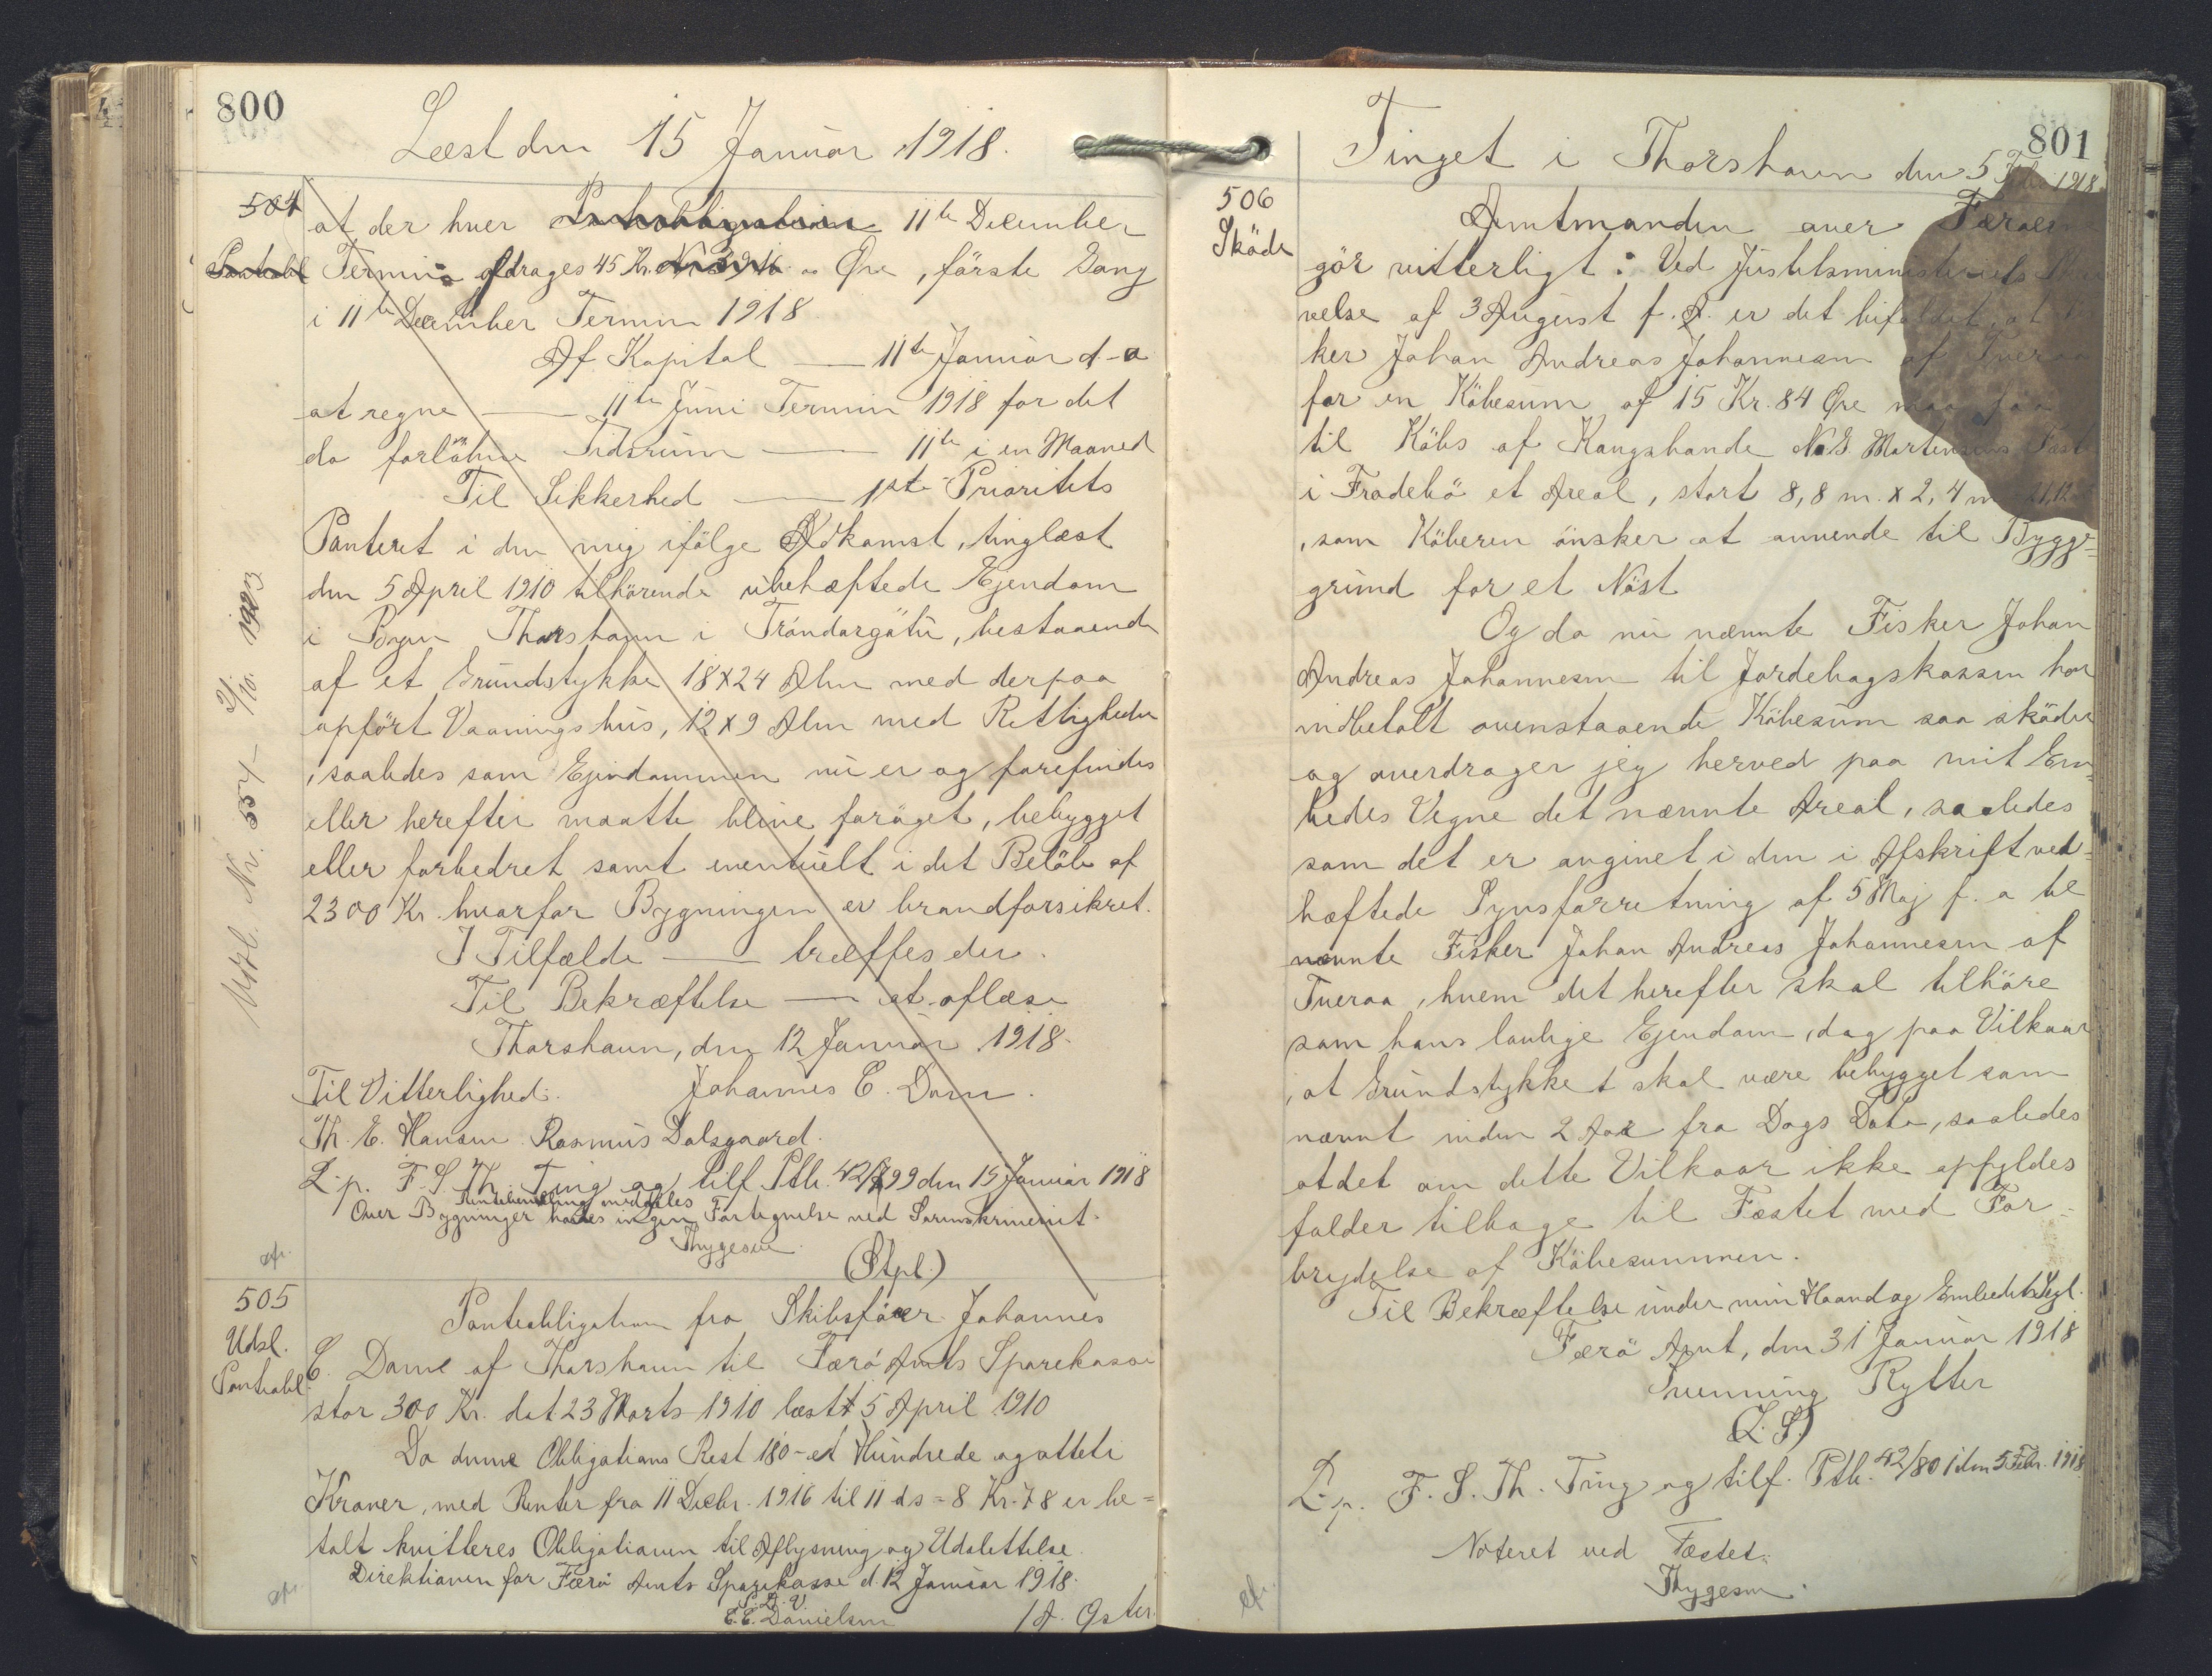 800
Læst den 15 Januar 1918.
504
Pantobl
at der hver Pantobligation 11te December
Termin afdrages 45 Kr. Øre, förste Gang
i 11te December Termin 1918
Af Kapital — 11te Januar d-a
at regne — 11te Juni Termin 1918 for det
da forlöbne Tidsrum — 11te i en Maaned
Til Sikkerhed — 1ste Prioritets
Panteret i den mig ifölge Adkomst, tinglæst
den 5 April 1910 tilhörende ubehæftede Ejendom
i Byen Thorshavn i Tróndargötu, bestaaende
af et Grundstykke 18 x 24 Alen med derpaa
opfört Vaaningshus, 12 x 9 Alen med Rettigheder
, saaledes som Ejendommen nu er og forefindes
eller herefter maatte blive foröget, bebygget
eller forbedret samt eventuelt i det Belöb af
2300 Kr. hvorfor Bygningen er brandforsikret.
I Tilfælde — træffes der.
Til Bekræftelse — at aflæse
Thorshavn, den 12 Januar 1918.
Til Vitterlighed: Johannes C. Dam.
Th. E. Hansen. Rasmus Dalsgaard.
L. p. F. S. Th. Ting og tilf. Ptb. 42/799 den 15 Januar 1918
meddeles
Over Bygninger haves ingen Fortegnelse ved Sorenskriveriet.
Thygesen.
(Stpl.)
Udsl. Nr. 557 - 2/10. 1923
505
Udsl.
Pantobl.
Pantobligation fra Skibsförer Johannes
C. Dame af Thorshavn til Færö Amts Sparekasse
stor 300 Kr. dat. 23 Marts 1910 læst 5 April 1910
Da denne Obligations Rest 180 - et Hundrede og otteti
Kroner, med Renter fra 11 Decbr. 1916 til 11 ds = 8 Kr. 78 er be=
talt kvitteres Obligationen til Aflysning og Udslettelse.
Direktionen for Færö Amts Sparekasse d. 12 Januar 1918.
E. E. Danielsen
801
Tinget i Thorshavn den 5 Febr 1918
506
Sköde
Amtmanden over Færöer
gör vitterligt: Ved Justitsministeriets
velse af 3 August f. A. er det bifaldet, at
ker Johan Andreas Johannesen af Tveraa
for en Köbesum af 15 Kr. 84 Øre maa faa
til Köbs af Kongsbonde N. G. Mortensens Fæste
i Frodebö et Areal, stort 8,8 m. x 2,4 m 21,12
, som Köberen önsker at anvende til Bygge=
grund for et Nöst
Og da nu nævnte Fisker Johan
Andreas Johannesen til Jordebogskassen har
indbetalt ovenstaaende Köbesum saa sköder
og overdrager jeg herved paa mit Em=
bedes Vegne det nævnte Areal, saaledes
som det er angivet i den i Afskrift ved=
hæftede Synsforretning af 5 Maj f. a til
nævnte Fisker Johan Andreas Johannesen af
Tveraa, hvem det herefter skal tilhöre
som hans lovlige Ejendom, dog paa Vilkaar
, at Grundstykket skal være bebygget som
nævnt inden 2 Aar fra Dags Dato, saaledes
at det om dette Vilkaar ikke opfyldes
falder tilbage til Fæstet med For=
brydelse af Köbesummen.
Til Bekræftelse under min Haand og Embedets Segl.
Færö Amt, den 31 Januar 1918
Svenning Rytter
(L. S.)
L. p. F. S. Th. Ting og tilf. Ptb. 42/801 den 5 Febr. 1918
Noteret ved Fæstet.
Thygesen.